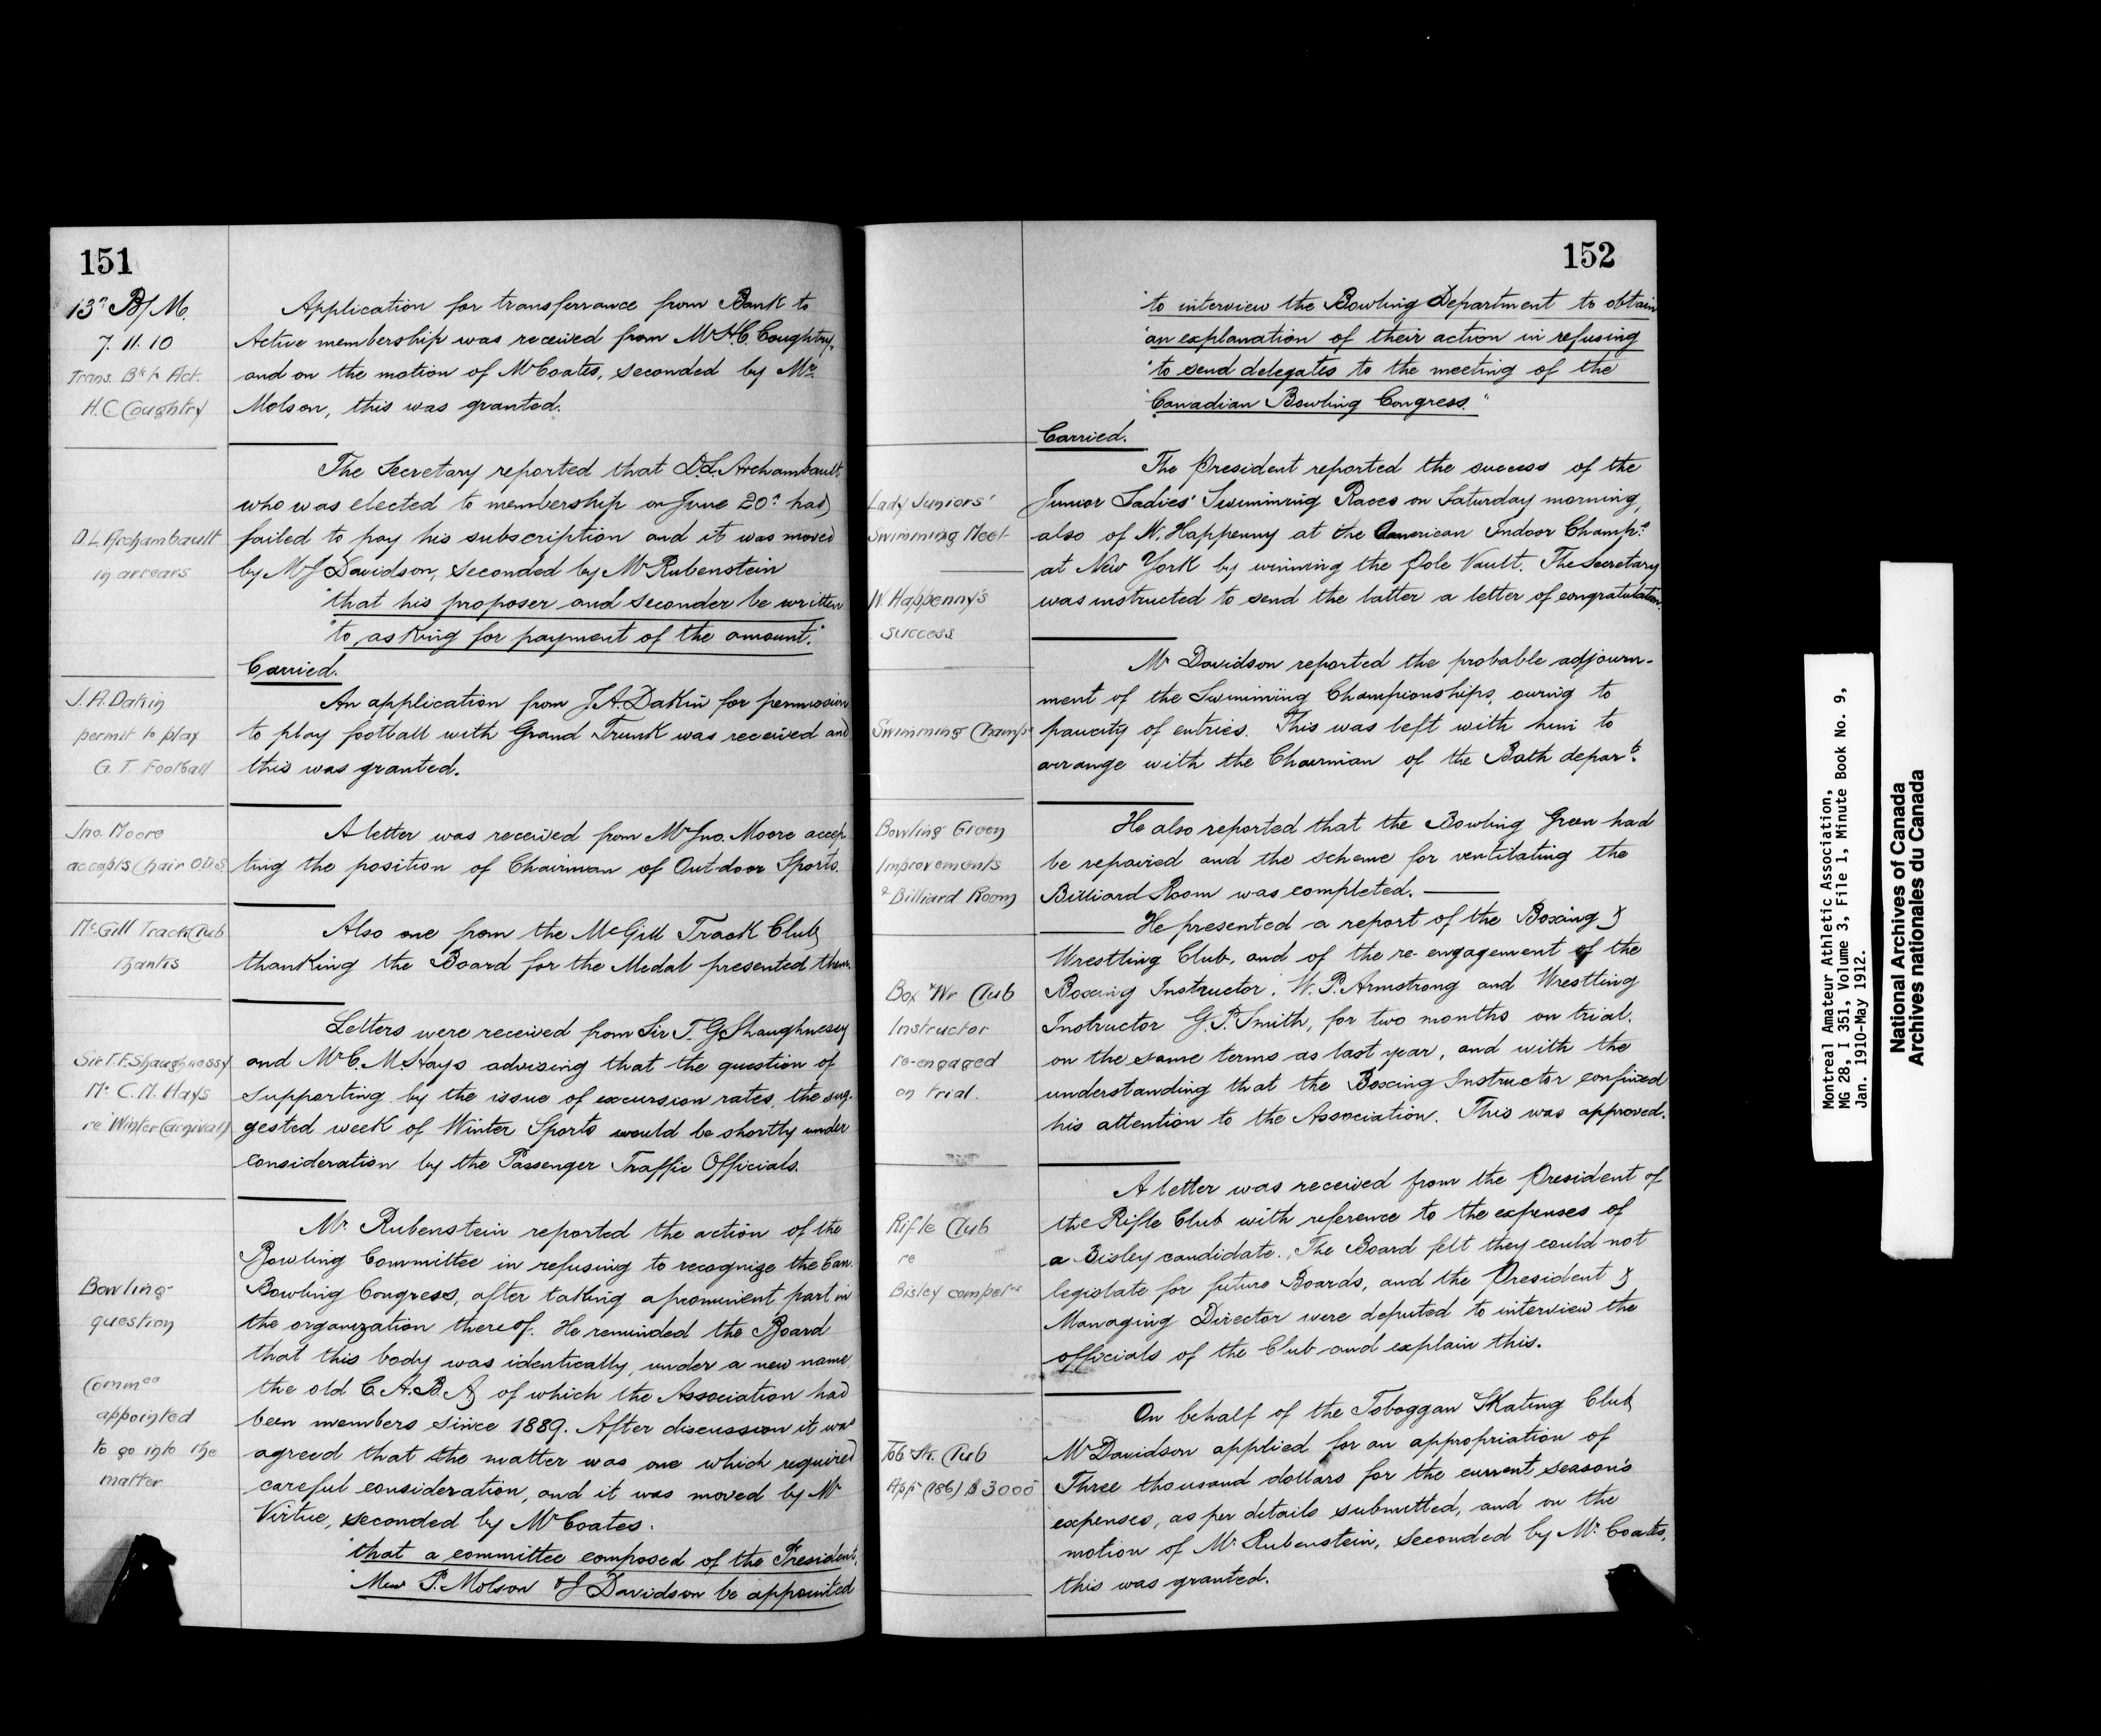 151
13th B/M.
7. 11. 10
Trans. Bk to Act.
H. C Coughtry
Application for transferrance from Bank to
Active membership was received from Mr H. C. Coughtry,
and on the motion of Mr Coates, seconded by Mr
Molson, this was granted.
D L Archambault
in arrears
The Secretary reported that D. L. Archambault
who was elected to membership on June 20th had
failed to pay his subscription and it was moved
by Mr J Davidson, seconded by Mr Rubenstein
"that his proposer and seconder be written
"to, asking for payment of the amount."
Carried.
J. A. Dakin
permit to play
G. T. Football
An application from J. A. Dakin for permission
to play football with Grand Trunk was received and
this was granted.
Jno. Moore
accepts Chair O.D.S
A letter was received from Mr Jno. Moore accep-
ting the position of Chairman of Out-door Sports.
McGill Track Club
thanks
Also one from the McGill Track Club,
thanking the Board for the Medal presented them.
Sir T. F. Shaughnessy
Mr C. M. Hays
re Winter Carnival
Letters were received from Sir T. G. Shaughnessy
and Mr C. M. Hays advising that the question of
supporting by the issue of excursion rates, the sug-
gested week of Winter Sports would be shortly under
consideration by the Passenger Traffic Officials.
Bowling
question
Commee
appointed
to go into the
matter
Mr. Rubenstein reported the action of the
Bowling Committee in refusing to recognize the Can.
Bowling Congress, after taking a prominent part in
the organization thereof. He reminded the Board
that this body was identically, under a new name,
the old C. A. B. A, of which the Association had
been members since 1889. After discussion it was
agreed that the matter was one which required
careful consideration, and it was moved by Mr
Virtue, seconded by Mr Coates.
"that a committee composed of the President,
"Messrs P. Molson & J Davidson be appointed
152
"to interview the Bowling Department to obtain
"an explanation of their action in refusing
"to send delegates to the meeting of the
"Canadian Bowling Congress."
Carried.
Lady Juniors'
Swimming Meet
W. Happenny's
success
The President reported the success of the
Junior Ladies' Swimming Races on Saturday morning,
also of W. Happenny at the American Indoor Champs.
at New York by winning the Pole Vault. The Secretary
was instructed to send the latter a letter of congratulation.
Swimming Champs
Mr Davidson reported the probable adjourn-
ment of the Swimming Championships, owing to
paucity of entries. This was left with him to
arrange with the Chairman of the Bath depart.
Bowling Green
Improvements
& Billiard Room
He also reported that the Bowling Green had
be repaired and the scheme for ventilating the
Billiard Room was completed.
Box & Wr Club
Instructor
re-engaged
on trial.
He presented a report of the Boxing &
Wrestling Club, and of the re-engagement of the
Boxing Instructor, W. P. Armstrong and Wrestling
Instructor G. P. Smith, for two months on trial.
on the same terms as last year, and with the
understanding that the Boxing Instructor confined
his attention to the Association. This was approved.
Rifle Club
re
Bisley competrs
A letter was received from the President of
the Rifle Club with reference to the expenses of
a Bisley candidate. The Board felt they could not
legislate for future Boards, and the President &
Managing Director were deputed to interview the
officials of the Club and explain this.
Tob & Sk. Club
App (186) $3000
On behalf of the Toboggan & Skating Club
Mr Davidson applied for an appropriation of
Three thousand dollars for the current season's
expenses, as per details submitted, and on the
motion of Mr Rubenstein, seconded by Mr. Coates,
this was granted.
Montreal Amateur Athletic Association,
MG 28, I 351, Volume 3, File 1, Minute Book No. 9,
Jan. 1910-May 1912.
National Archives of Canada
Archives nationales du Canada